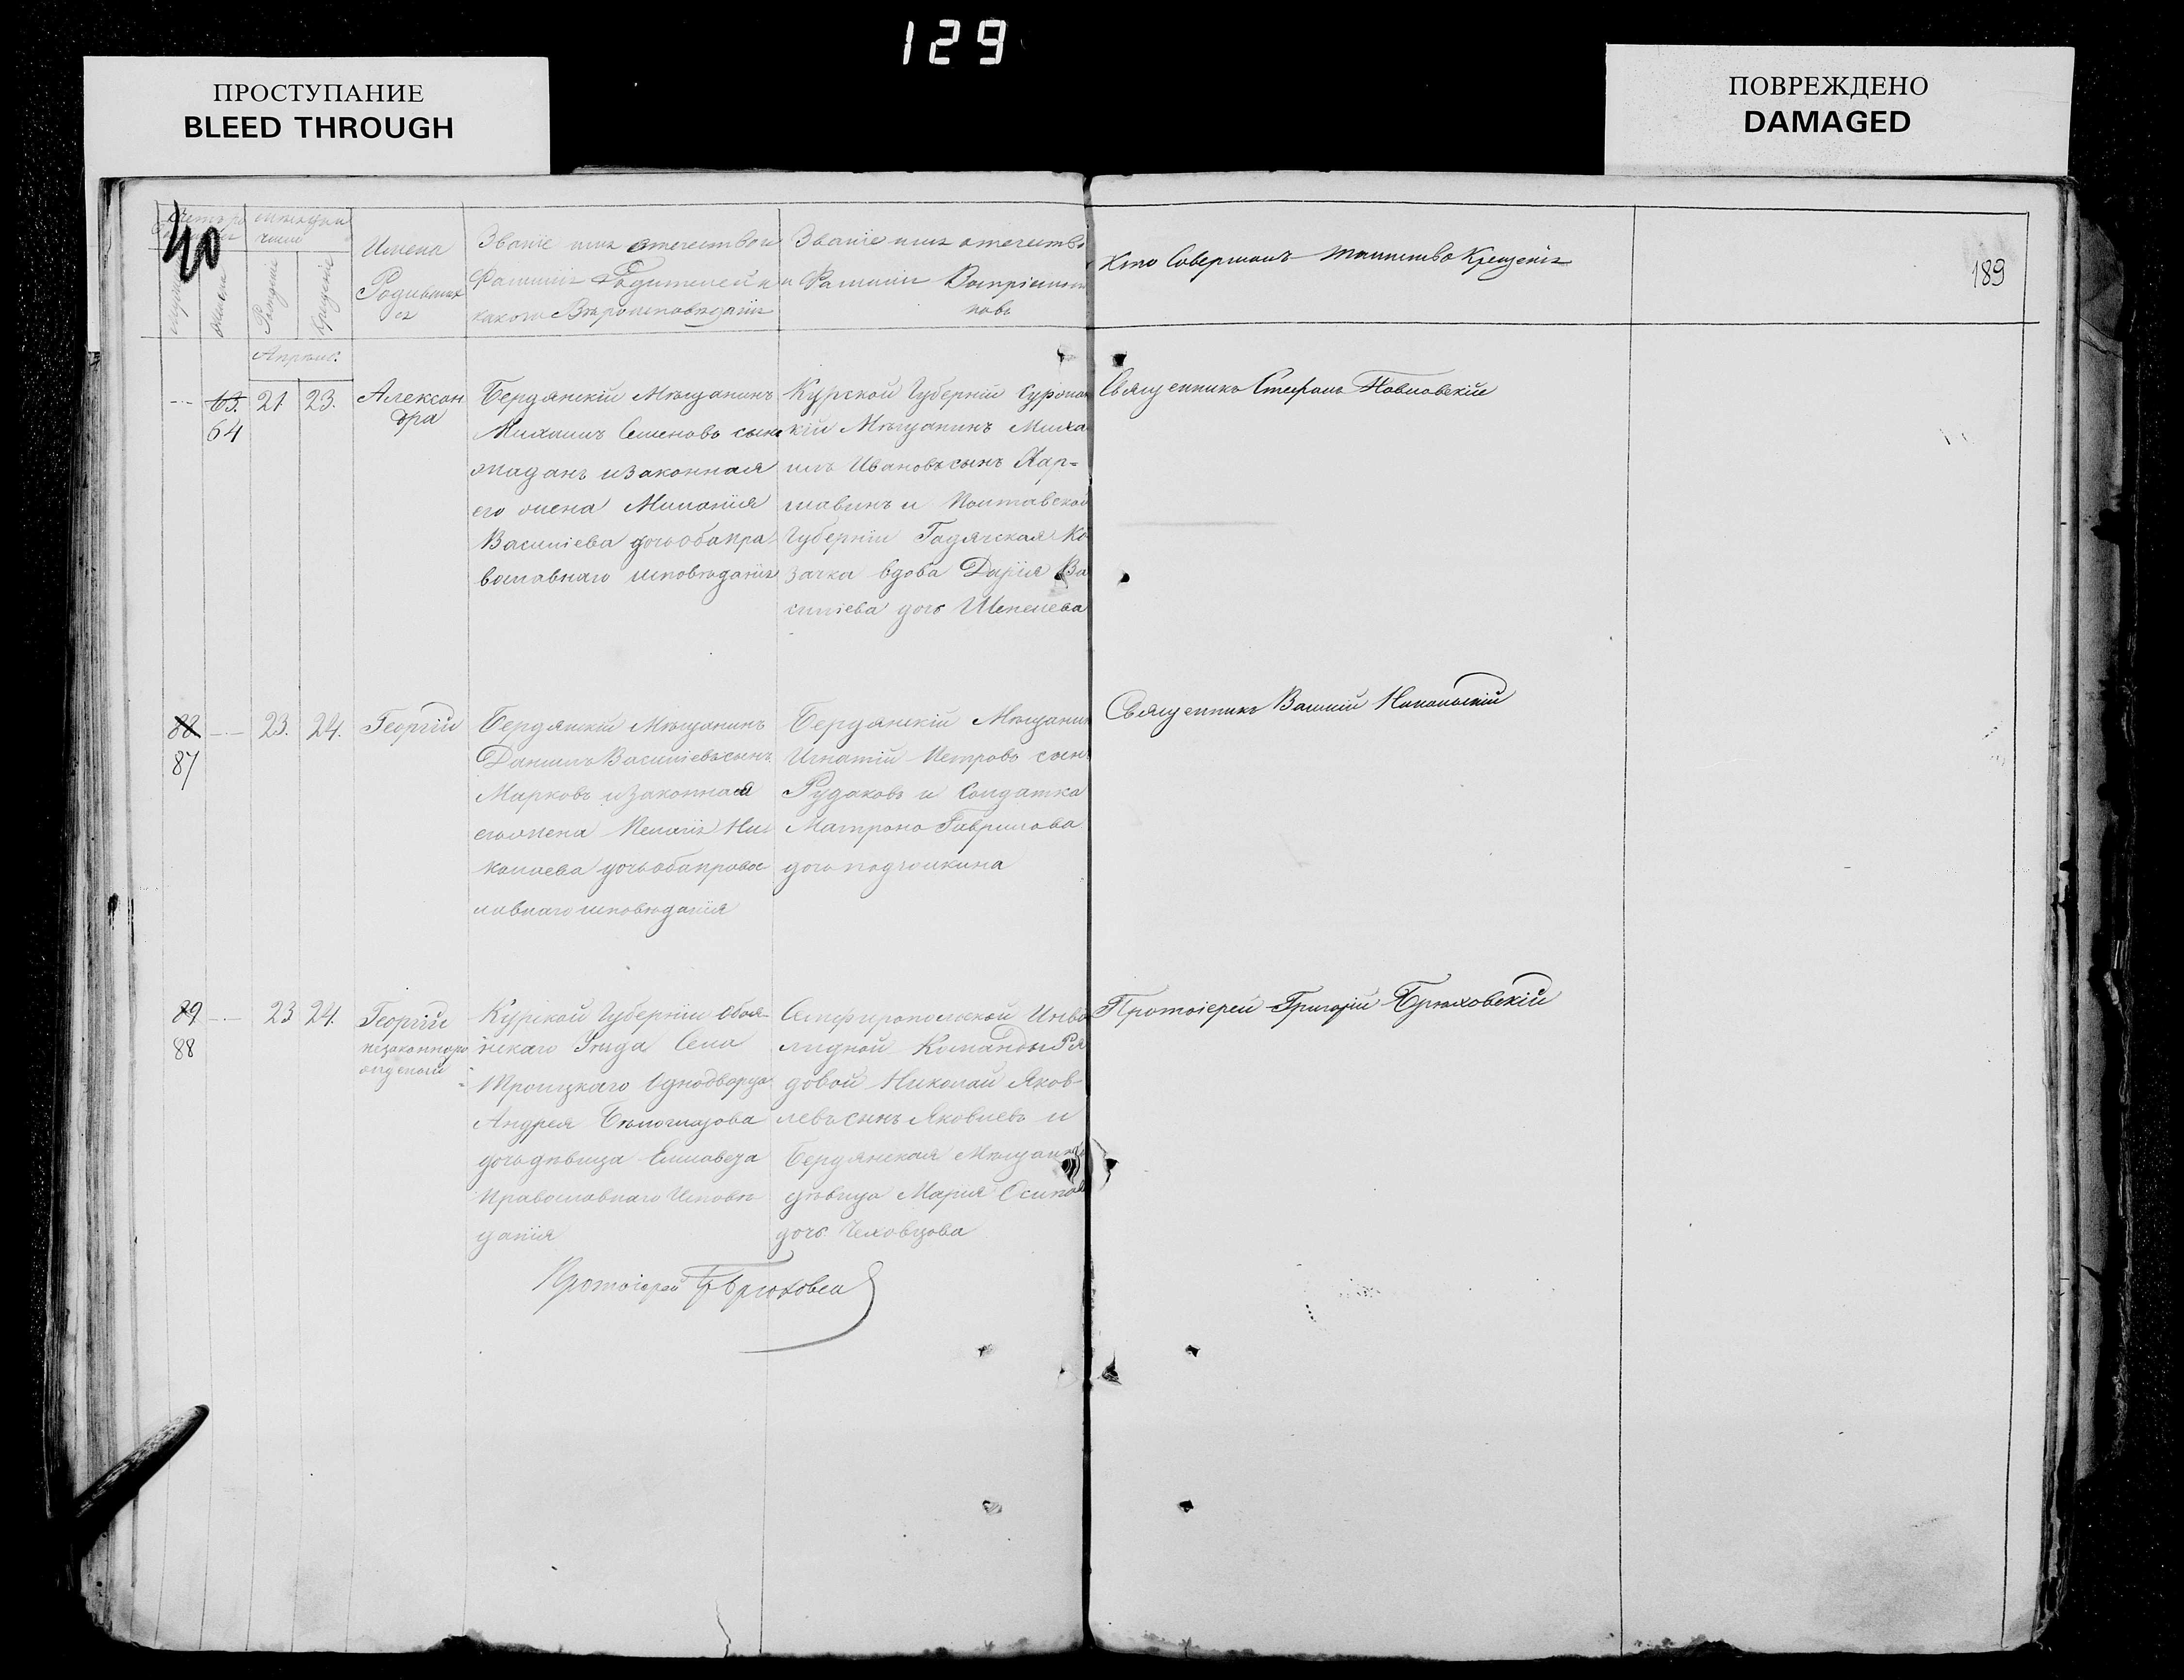 129
ПРОСТУПАНИЕ
BLEED THROUGH
ПОВРЕЖДЕНО
DAMAGED
189
Имена
Родивших
ся
Званіе имя отечество и
Фамилія Родителей и
какого Вѣроисповѣданія
Званіе имя отечество
и Фамилія Воспріемни
ковъ
Кто Совершалъ таинство Крещенія
Рожденіе
Крещеніе
Апрѣль.
63.
64
21.
23.
Алексан
дра
Бердянскій Мѣщанинъ
Михаилъ Семеновъ сынъ
его жена
Василіева дочь оба пра
вославнаго исповѣданія
Курской Губерніи
кій Мѣщанинъ Миха
илъ Ивановъ сынъ
и Полтавской
Губерніи Гадячская Ко
зачка вдова Дарія Ва
силіева дочь Шепелева
Священникъ Стефанъ Павловскій
88
87
23.
24.
Георгій
Бердянскій Мѣщанинъ
Даніилъ Василіевъ сынъ
Марковъ и законная
его жена Пелагія Ни
колаева дочь оба правос
лавнаго исповѣданія
Бердянскій Мѣщанин
Игнатій Петровъ сынъ
Рудаковъ и Солдатка
Матрона Гаврилова
дочь
Священникъ Василій Никольскій
89
88
23
24.
Георгій
незаконноро
жденный
Курской Губерніи Обоя-
нскаго Уѣзда Села
Троицкаго Однодворца
Андрея Бѣлоглазова
дочь дѣвица Елисавета
Православнаго Исповѣ
данія
Симферопольской Инва
лидной Команды Ря
довой Николай Яков-
левъ сынъ Яковлевъ и
Бердянская Мѣщанка
дѣвица Марія Осипова
дочь Чеховцова
Протоіерей Григорій Брюховскій
Протоіерей